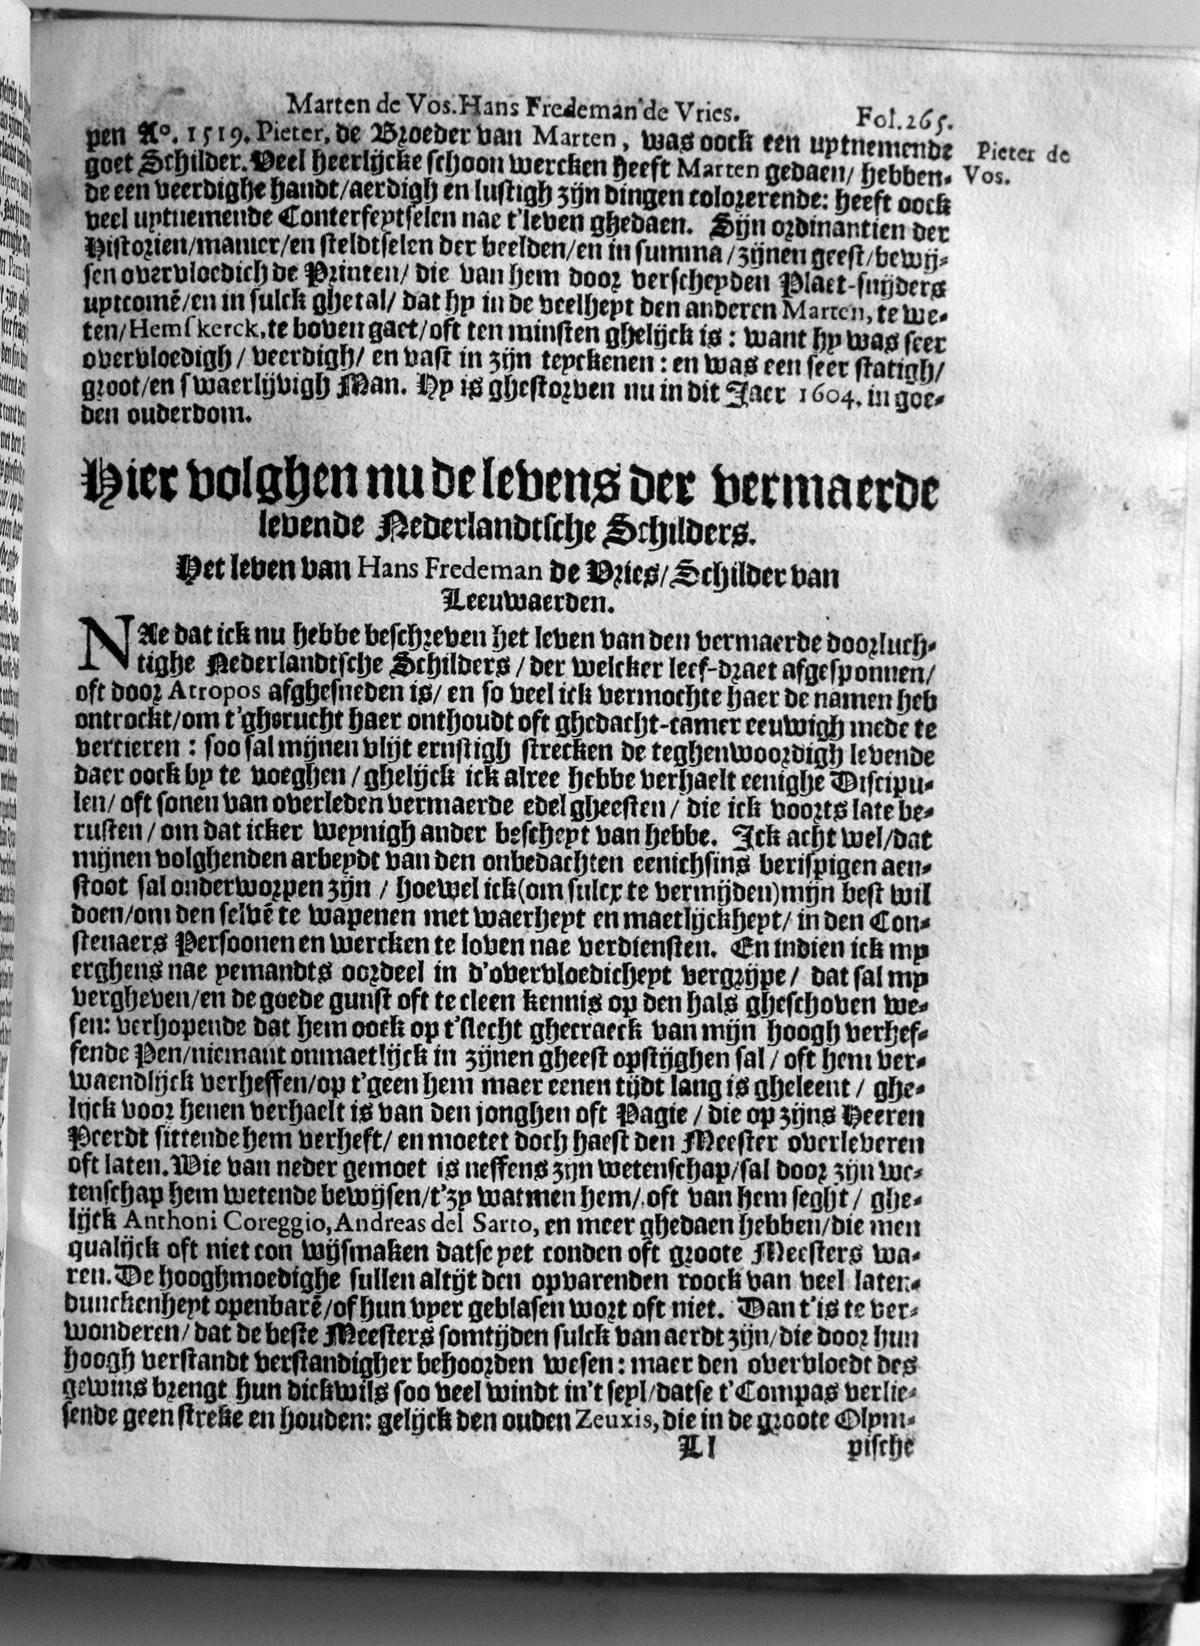 Marten de Vos. Hans Fredeman de Vries. Fol. 265.
pen Aº. 1519. Pieter, de Broeder van Marten, was oock een uytnemende
Pieter de Vos.
goet Schilder. Veel heerlijcke schoon wercken heeft Marten gedaen/ hebben-
de een veerdighe handt/aerdigh en lustigh zijn dingen colorerende: heeft oock
veel uytnemende Conterfeytselen nae t'leven ghedaen. Sijn ordinantien der
Historien/manier/en steldtselen der beelden/en in summa/zijnen geest/bewij-
sen overvloedich de Printen/ die van hem door verscheyden Plaet-snijders
uytcomē/en in sulck ghetal/ dat hy in de veelheyt den anderen Marten, te we-
ten/Hemskerck, te boven gaet/oft ten minsten ghelijck is: want hy was seer
overvloedigh/ veerdigh/ en vast in zijn teyckenen: en was een seer statigh/
groot/en swaerlijvigh Man. Hy is ghestorven nu in dit Jaer 1604. in goe-
den ouderdom.
Hier volghen nu de levens der vermaerde
levende Nederlandtsche Schilders.
Het leven van Hans Fredeman de Vries/Schilder van
Leeuwaerden.
NAe dat ick nu hebbe beschreven het leven van den vermaerde doorluch-
tighe Nederlandtsche Schilders/ der welcker leef-draet afgesponnen/
oft door Atropos afghesneden is/ en so veel ick vermochte haer de namen heb
ontrockt/om t'gherucht haer onthoudt oft ghedacht-camer eeuwigh mede te
vercieren: soo sal mijnen vlijt ernstigh strecken de teghenwoordigh levende
daer oock by te voeghen/ghelijck ick alree hebbe verhaelt eenighe Discipu-
len/ oft sonen van overleden vermaerde edel gheesten/ die ick voorts late be-
rusten/ om dat icker weynigh ander bescheyt van hebbe. Ick acht wel/dat
mijnen volghenden arbeydt van den onbedachten eenichsins berispigen aen-
stoot sal onderworpen zijn/ hoewel ick (om sulcx te vermijden) mijn best wil
doen/om den selvē te wapenen met waerheyt en maetlijckheyt/ in den Con-
stenaers Persoonen en wercken te loven nae verdiensten. En indien ick my
erghens nae yemandts oordeel in d'overvloedicheyt vergrijpe/ dat sal my
vergheven/en de goede gunst oft te cleen kennis op den hals gheschoven we-
sen: verhopende dat hem oock op t'slecht ghecraeck van mijn hoogh verhef-
fende Pen/niemant onmaetlijck in zijnen gheest opstijghen sal/ oft hem ver-
waendlijck verheffen/op t'geen hem maer eenen tijdt lang is gheleent/ ghe-
lijck voor henen verhaelt is van den jonghen oft Pagie/ die op zijns Heeren
Peerdt sittende hem verheft/ en moetet doch haest den Meester overleveren
oft laten. Wie van neder gemoet is neffens zijn wetenschap/sal door zijn we-
tenschap hem wetende bewijsen/t'zy watmen hem/ oft van hem seght/ ghe-
lijck Anthoni Coreggio, Andreas del Sarto, en meer ghedaen hebben/die men
qualijck oft niet con wijsmaken datse yet conden oft groote Meesters wa-
ren. De hooghmoedighe sullen altijt den opvarenden roock van veel laten-
dunckenheyt openbarē/of hun vyer geblasen wort oft niet. Dan t'is te ver-
wonderen/ dat de beste Meesters somtijden sulck van aerdt zijn/die door hun
hoogh verstandt verstandigher behoorden wesen: maer den overvloedt des
gewins brengt hun dickwils soo veel windt in't seyl/datse t'Compas verlie-
sende geen streke en houden: gelijck den ouden Zeuxis, die in de groote Olym-
Ll pische